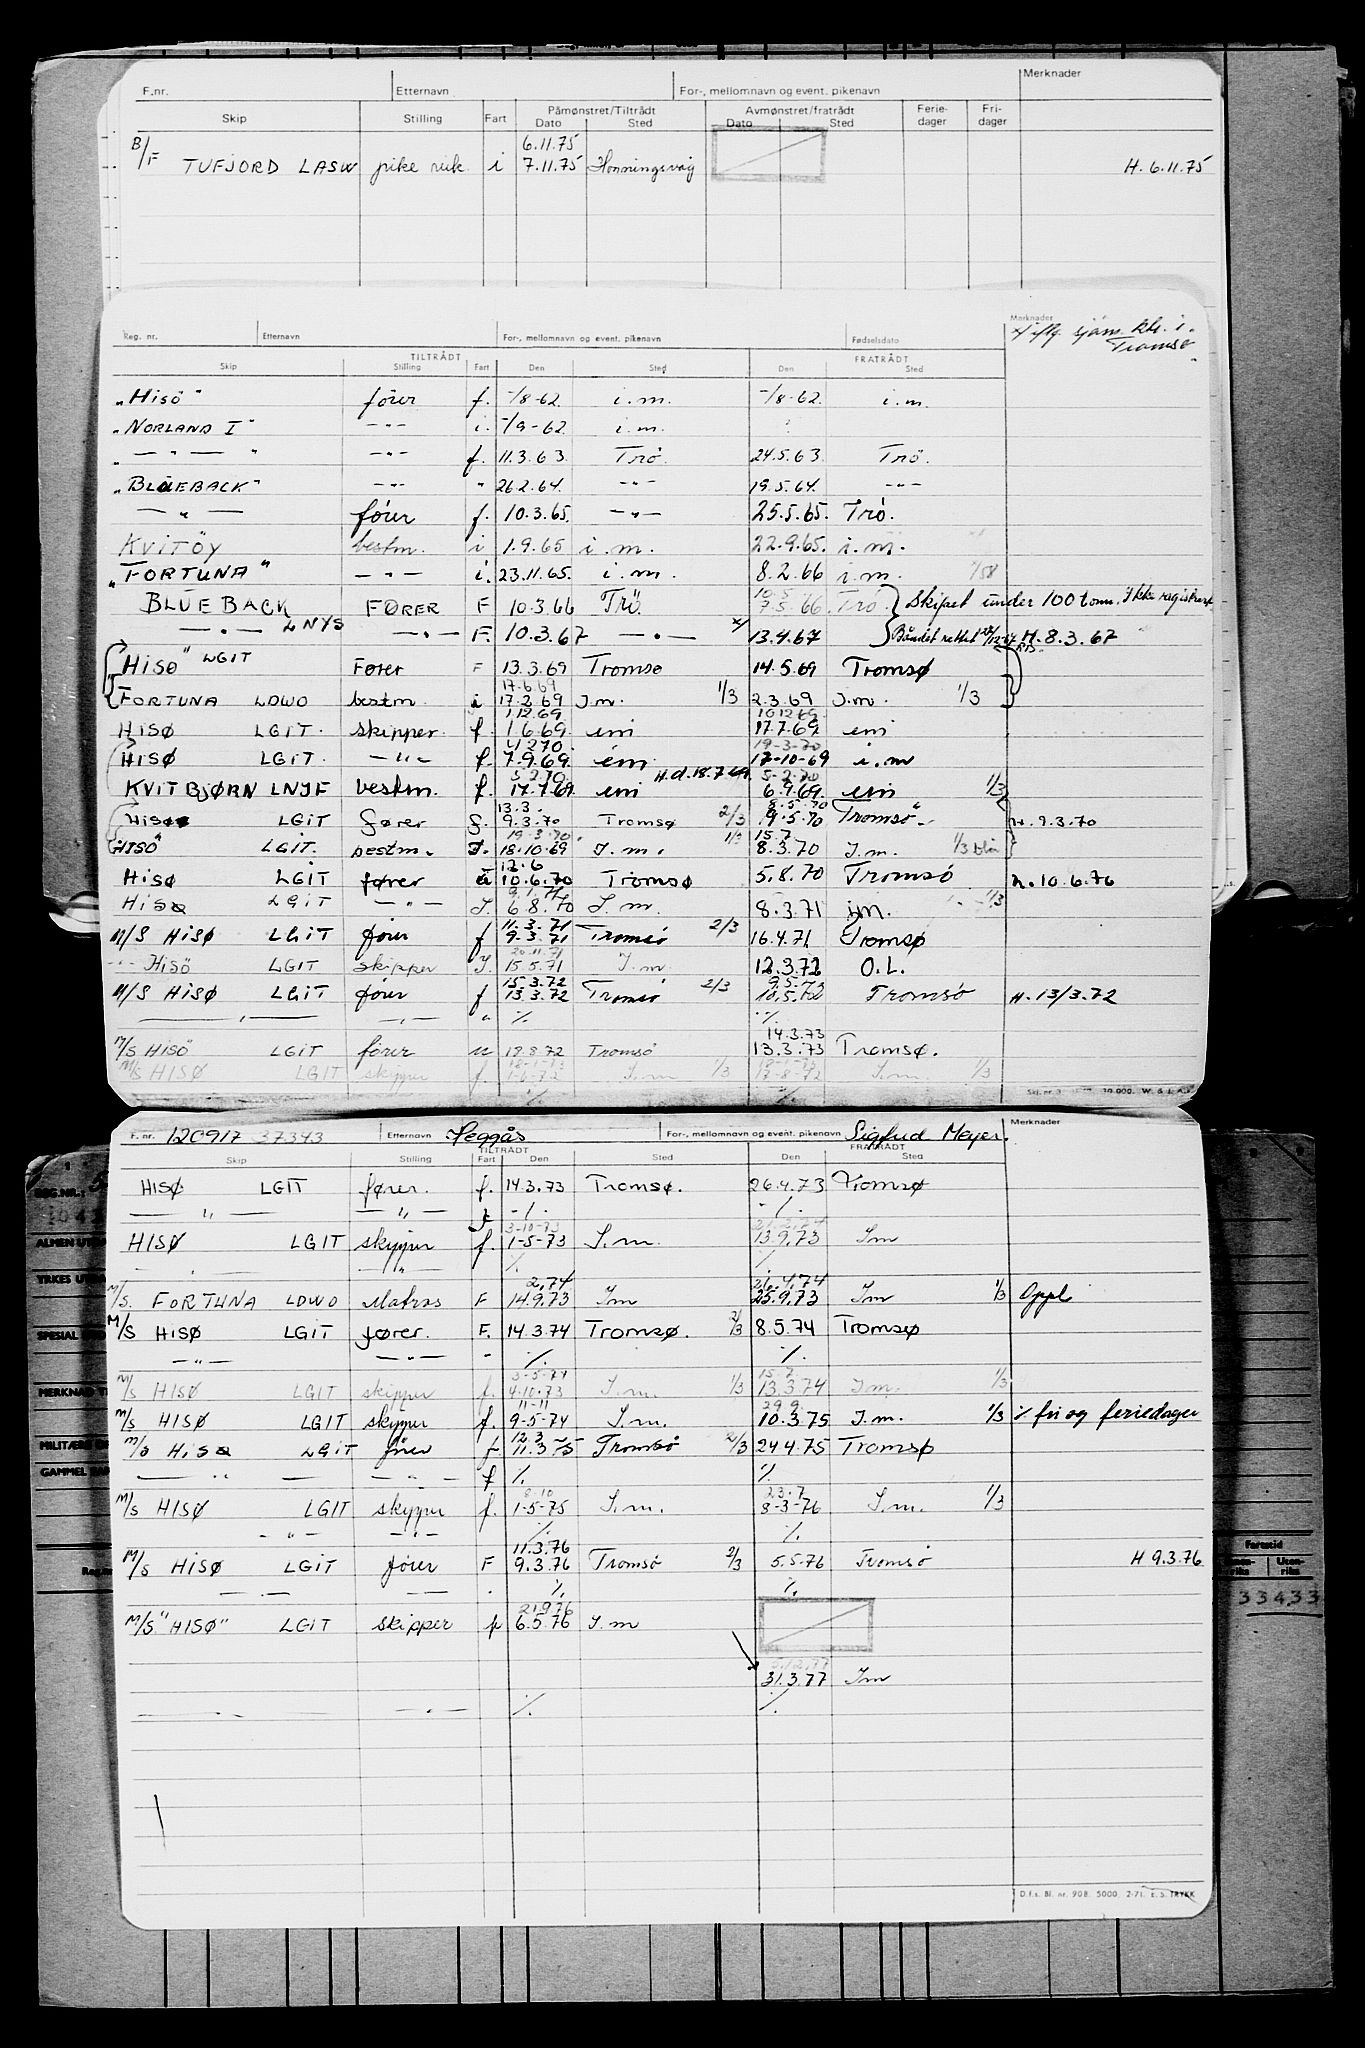 F.nr. Etternavn For-, mellomnavn og event. pikenavn Merknader
Skip Stilling Fart Påmønstret/Tiltrådt Dato Sted Avmønstret/fratrådt Dato Sted Ferie-dager Fri-dager
6.11.75
B/F TUFJORD LASW i 7.11.75 Honningsvåg H. 6.11.75
Reg. nr. Etternavn For-, mellomnavn og event. pikenavn Fødselsdato Merknader
x/ iflg. sjøm. ktr. i Tromsø
Skip TILTRÅDT Stilling Fart Den Sted FRATRÅDT Den Sted
"Hisö" fører f. -/8-62 i.m. -/8-62. i.m.
"NORLAND I" -"- i. -/9-62 i.m. ?
" - " - " -"- f. 11.3.63. Trö. 24.5.63. Trö.
"BLUEBACK" -"- " 26.2.64. -"- 19.5.64. -"-
- " - fører f. 10.3.65. -"- 25.5.65. Trö.
KVITÖY bestm. i 1.9.65 i.m. 22.9.65. i.m.
"FORTUNA" -"- i. 23.11.65. i.m. 8.2.66 i.m.
10.5
BLUEBACK FØRER F 10.3.66 Trö. 7.5.66 Trö. Skipet under 100 tonn. Ikke registrert
- " - LNYS - " - F. 10.3.67 - " - x/ 13.4.67 H. 8.3.67
HISØ" LGIT Fører F 13.3.69 Tromsø 14.5.69 Tromsø
17.6.69
FORTUNA LDWO bestm. i 17.2.69 I.m. 1/3 2.3.69 I.m. 1/3
1.12.69 10.12.69
HISØ LGIT. skipper. f. 1.6.69. im 17.7.69. im
4.2.70. 19-3-70
HISØ LGIT. -"- f. 7.9.69. im 17-10-69 i.m
5.2.70 H.d. 18.7.69. 5-2-70
KVITBJØRN LNYF bestm. f. 17.7.69. im 6.9.69. im 1/3
13.3. 8.5.70
HISØ LGIT fører f. 9.3.70 Tromsø 2/3 9.5.70 Tromsø. H. 9.3.70
19.3.70. 15.7
HISÖ" LGIT. bestm. I. 18.10.69 I.m. 1/3 8.3.70 I.m. 1/3
12.6
HISØ LGIT fører u 10.6.70 Tromsø 5.8.70 Tromsø H. 10.6.70
9.1.71
HISØ LGIT -"- I. 6.8.70 I.m. 8.3.71 im. 1/3
11.3.71
M/S HISØ LGIT fører f 9.3.71 Tromsø 2/3 16.4.71 Tromsø
20.11.71
-"- HISÖ LGIT skipper I. 15.5.71 I.m 12.3.72 O.L.
15.3.72 9.5.72
M/S HISØ LGIT fører f 13.3.72 Tromsø 2/3 10.5.72 Tromsø H. 13/3.72
- " - -"- " % %
14.3.73
M/S HISÖ LGIT fører u 19.8.72 Tromsö 13.3.73 Tromsø.
18-1-73 18-1-73
M/S HISØ LGIT skipper f. 1-6-72 I.m 1/3 17-8-72 I.m. 1/3
% %
F. nr. 120917 37343 Etternavn Heggås For-, mellomnavn og event. pikenavn Sigfrid Meyer. Merknader
Skip Stilling TILTRÅDT Fart Den Sted FRATRÅDT Den Sted
HISØ LGIT fører. f. 14.3.73 Tromsø. 26.4.73 Tromsø
- " - - " - f -/. -/.
3-10-73 21.2.74
HISØ LGIT skipper f. 1-5-73 I.m. 13.9.73 Im
- " - - " - % %
2.74 26.4.74
M/S. FORTUNA LDWO Matros F 14.9.73 Im 25.9.73 Im 1/3 Oppl
M/S HISØ LGIT fører. F. 14.3.74 Tromsø. 2/3 8.5.74 Tromsø
- " - - " - " % %
3-5-74 15.7
M/S HISØ LGIT skipper f. 4.10.73 I.m. 1/3 13.3.74 I.m. 1/3
11-11 29.9.
M/S HISØ LGIT skipper f. 9-5-74 I.m. 10.3.75 I.m. 1/3 % fri og feriedager
12.3
M/S HISØ LGIT fører f 11.3.75 Tromsö 2/3 24.4.75 Tromsø
- " - - " - f % %
8.10 23.7
M/S HISØ LGIT skipper f. 1-5-75 I.m. 8-3-76 I.m. 1/3
- " - - " - % %
11.3.76
M/S HISØ LGIT fører F 9.3.76 Tromsö 2/3 5.5.76 Tromsö H 9.3.76
- " - - " - " % %
21.9.76
M/S "HISØ" LGIT skipper f 6.5.76 I.m
31.3.77 I.m
- " - - " - % %
D.f.s. Bl. nr. 908. 5000. 2-71. E. S. TRYKK
REG.NR.:
ALMEN
YRKES
SPESIAL
MERKNAD
MILITÆRE
GAMMEL
Fartstid
Uten-riks
33433